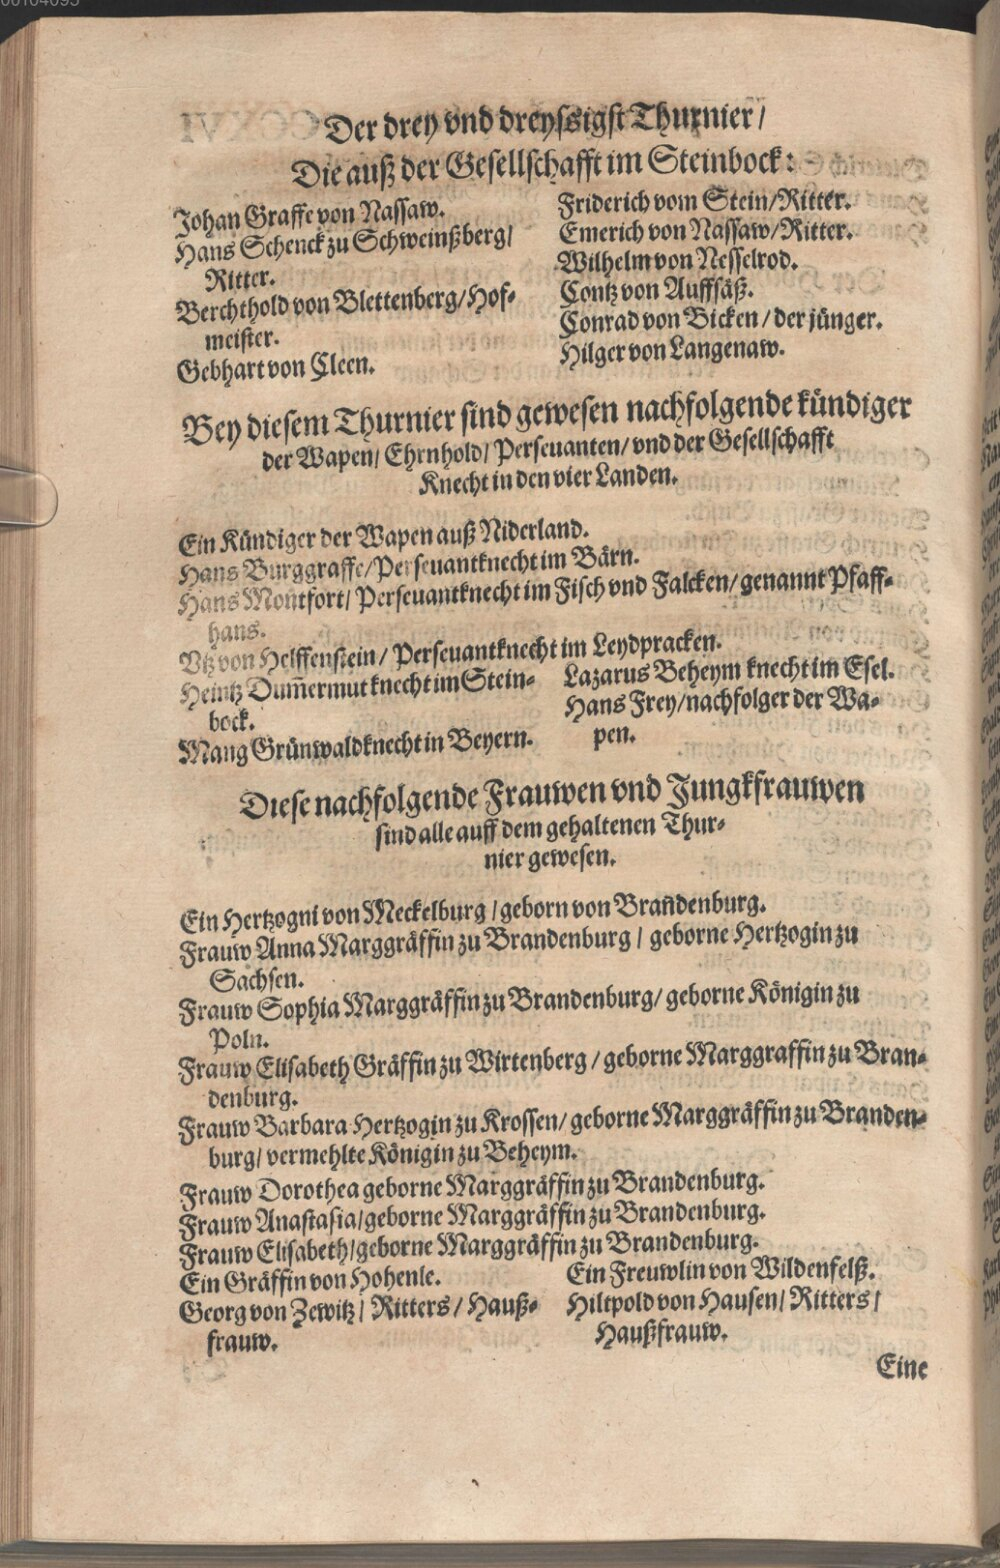 Der drey vnd dreyssigst Thurnier /
Die auß der Gesellschafft im Steinbock:
Johan Graffe von Nassaw.
Hans Schenck zu Schweinßberg/
Ritter.
Berchthold von Blettenberg/ Hof-
meister.
Gebhart von Cleen.
Friderich vom Stein/ Ritter.
Emerich von Nassaw/ Ritter.
Wilhelm von Nesselrod.
Contz von Auffsäß.
Conrad von Bicken / der jünger.
Hilger von Langenaw.
Bey diesem Thurnier sind gewesen nachfolgende kündiger
der Wapen/ Ehrnhold/ Perseuanten/ vnd der Gesellschafft
Knecht in den vier Landen.
Ein Kündiger der Wapen auß Niderland.
Hans Burggraffe/ Perseuantknecht im Bärn.
Hans Montfort/ Perseuantknecht im Fisch vnd Falcken/ genannt Pfaff-
hans.
Vtz von Helffenstein / Perseuantknecht im Leydpracken.
Heintz Dum̃ermut knecht im Stein-
bock.
Mang Grünwald knecht in Beyern.
Lazarus Beheym knecht im Esel.
Hans Frey/ nachfolger der Wa-
pen.
Diese nachfolgende Frauwen vnd Jungkfrauwen
sind alle auff dem gehaltenen Thur-
nier gewesen.
Ein Hertzogni von Meckelburg / geborn von Brandenburg.
Frauw Anna Marggräffin zu Brandenburg / geborne Hertzogin zu
Sachsen.
Frauw Sophia Marggräffin zu Brandenburg/ geborne Königin zu
Poln.
Frauw Elisabeth Gräffin zu Wirtenberg / geborne Marggraffin zu Bran-
denburg.
Frauw Barbara Hertzogin zu Krossen/ geborne Marggräffin zu Branden-
burg/ vermehlte Königin zu Beheym.
Frauw Dorothea geborne Marggräffin zu Brandenburg.
Frauw Anastasia/ geborne Marggräffin zu Brandenburg.
Frauw Elisabeth/ geborne Marggräffin zu Brandenburg.
Ein Gräffin von Hohenle.
Georg von Zewitz / Ritters / Hauß-
frauw.
Ein Freuwlin von Wildenfelß.
Hiltpold von Hausen/ Ritters /
Haußfrauw.
Eine